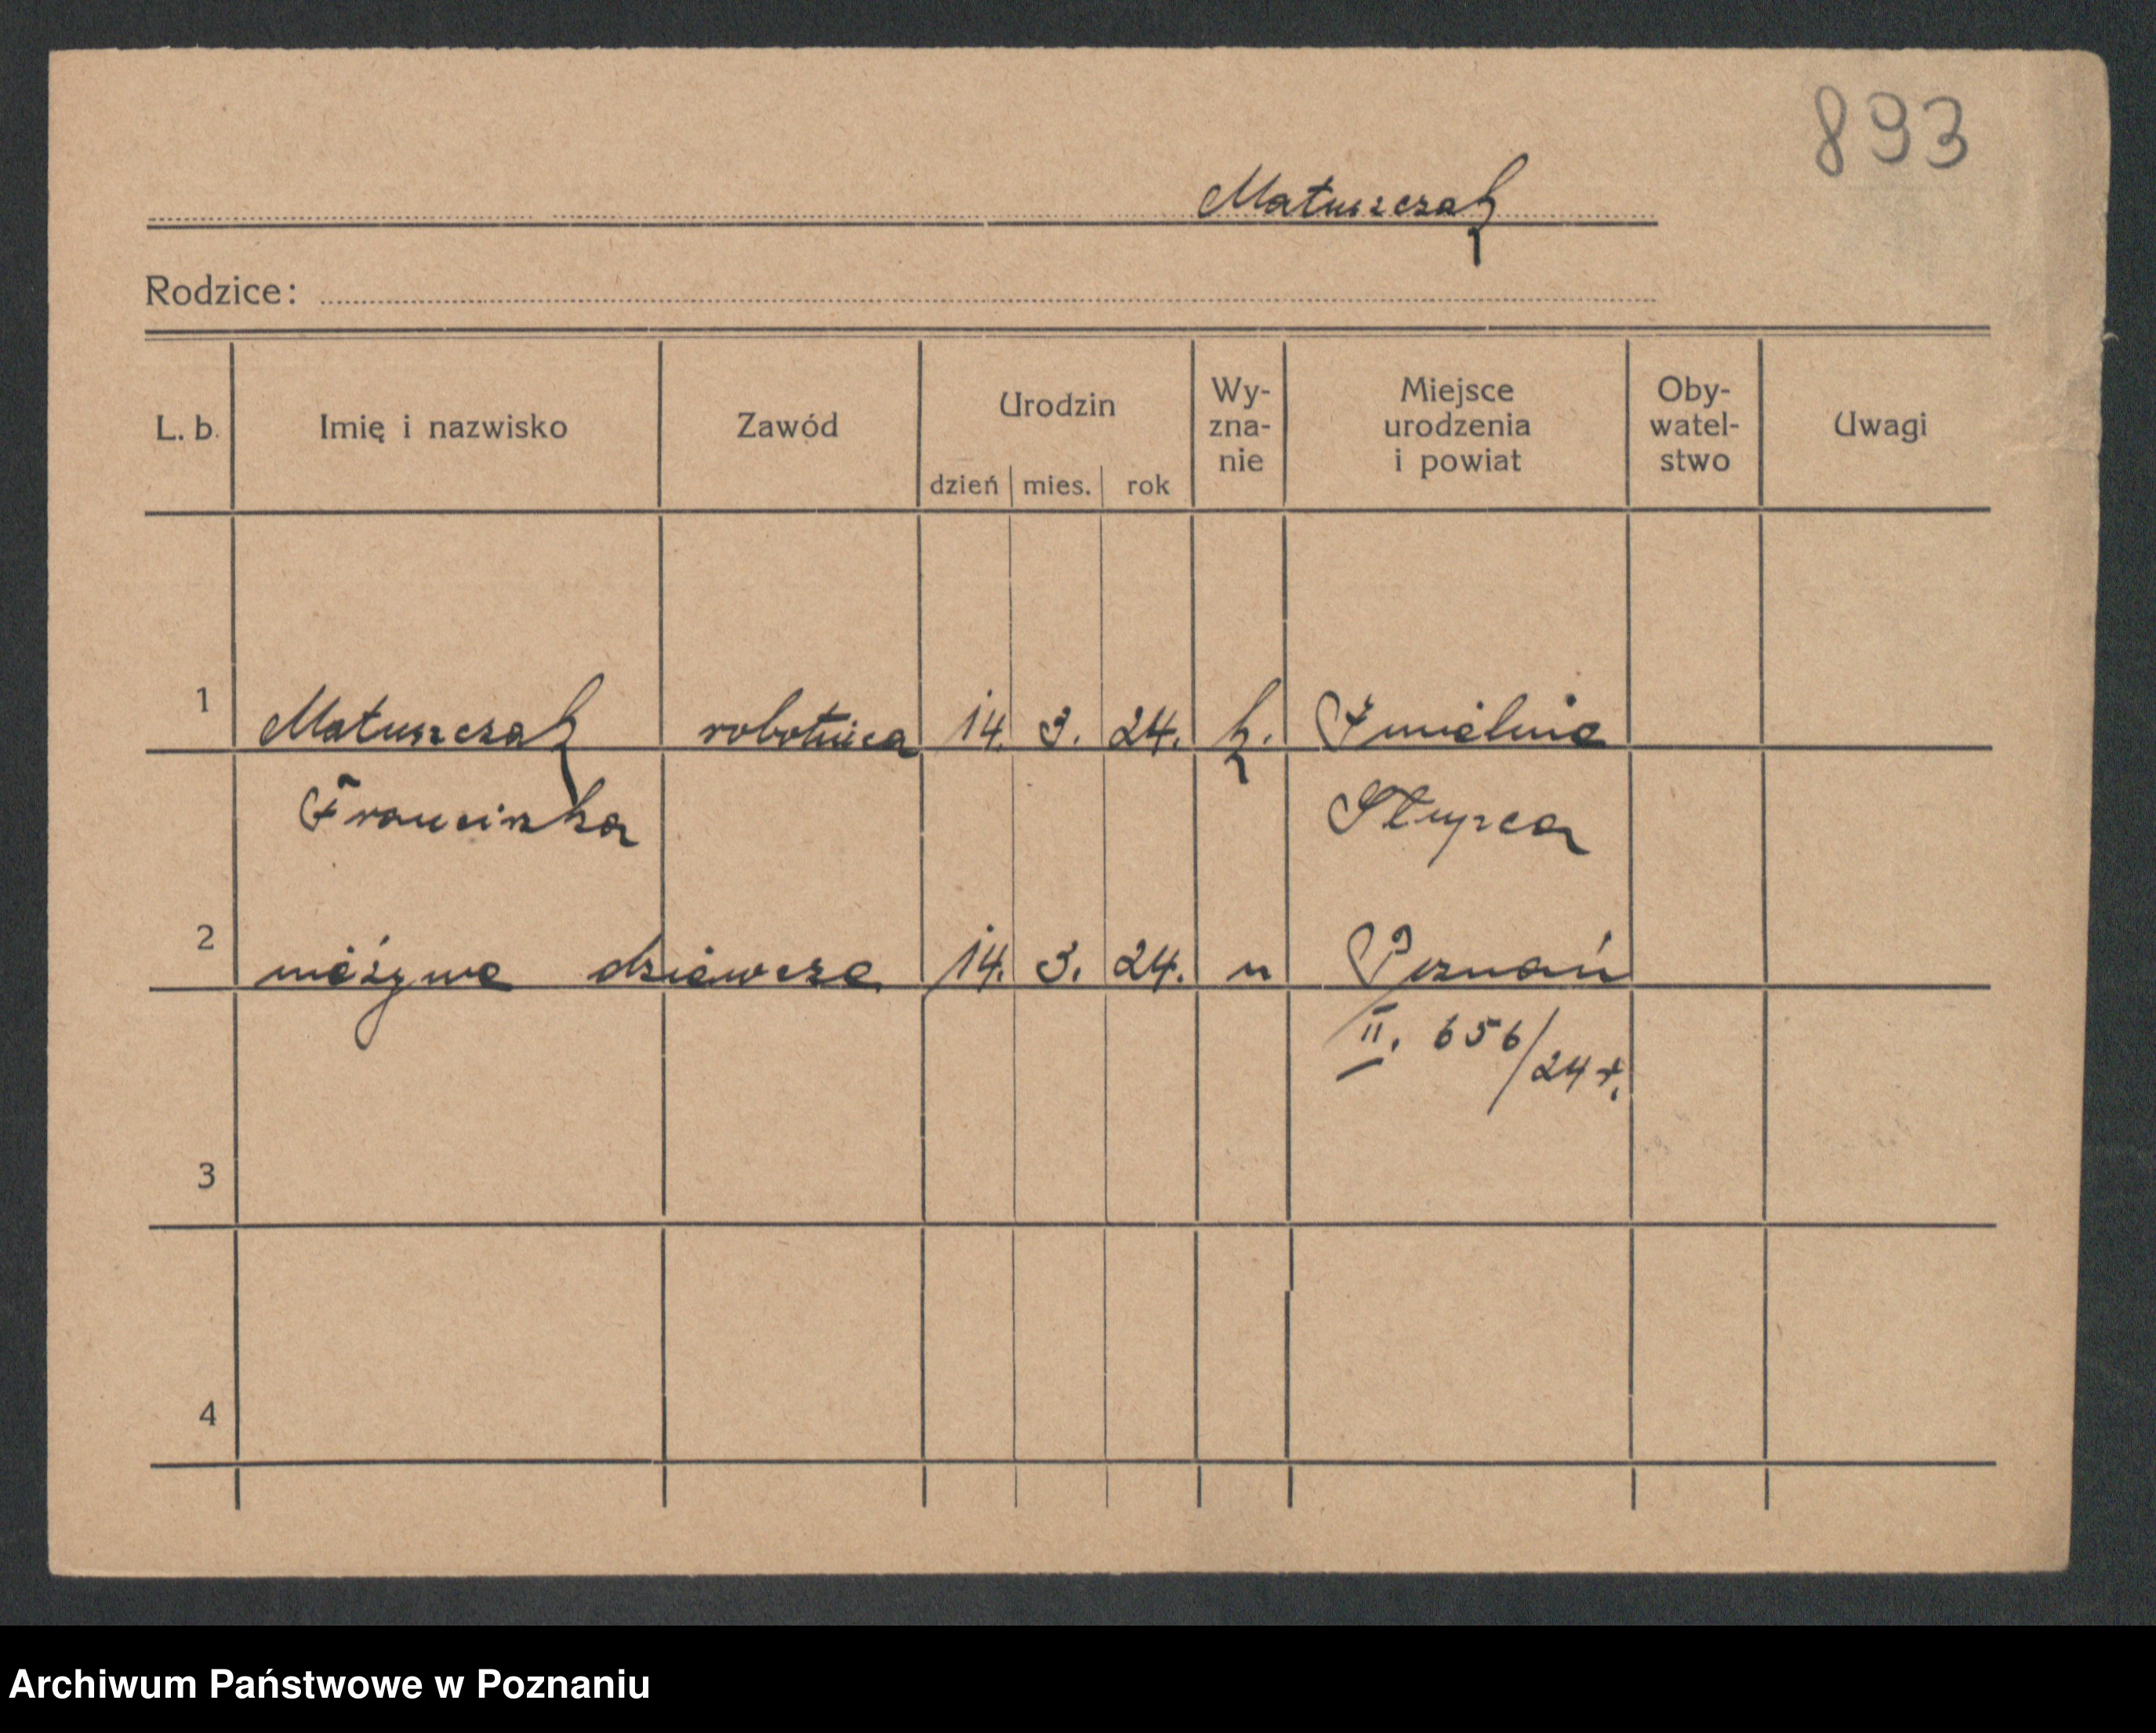 893
Matuszczak
Rodzice:
L. b. Imię i nazwisko Zawód Urodzin dzień mies. rok Wy-zna-nie Miejsce urodzenia i powiat Oby-watel-stwo Uwagi
1 Matuszczak robotnica 14. 3. 24. k.
Franciszka Słupca
2 nieżywe dziewcze 14. 3. 24. n Poznań
II. 656/24 +.
3
4
Archiwum Państwowe w Poznaniu